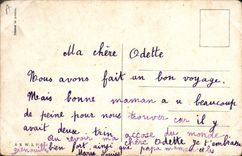 Ma chère Odette
Nous avons fait un bon voyage.
Mais bonne maman a u beaucoup
de peine pour nous trouver car il y
avait deux train accose du monde.
Au revoir ma chère Odette Je t'embrasse
bien fort ainsi que papa
Marie Louise